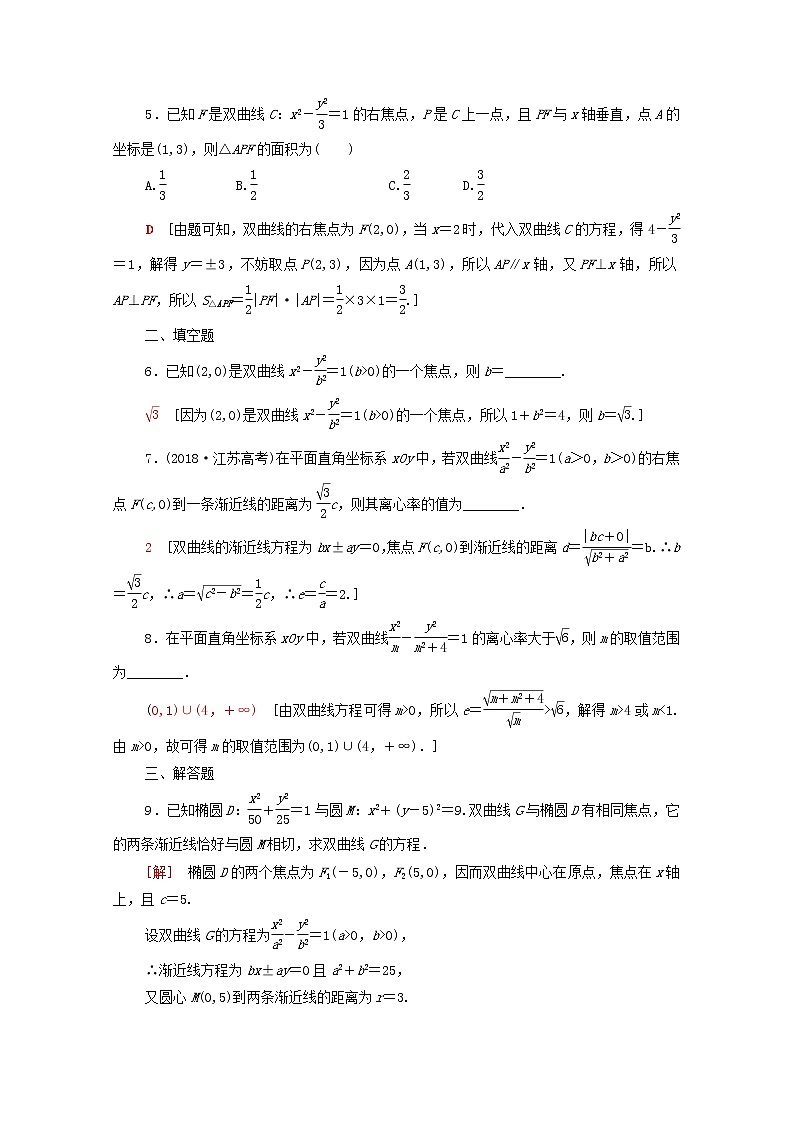 5.已知 F 是双曲线 C：x²－y²/3＝1 的右焦点，P 是 C 上一点，且 PF 与 x 轴垂直，点 A 的
坐标是(1,3)，则△APF 的面积为(　　)
A.1/3　　B.1/2　　C.2/3　　D.3/2
D　[由题可知，双曲线的右焦点为 F(2,0)，当 x＝2 时，代入双曲线 C 的方程，得 4－y²/3
＝1，解得 y＝±3，不妨取点 P(2,3)，因为点 A(1,3)，所以 AP∥x 轴，又 PF⊥x 轴，所以
AP⊥PF，所以 S△APF＝1/2|PF|·|AP|＝1/2×3×1＝3/2.]
二、填空题
6.已知(2,0)是双曲线 x²－y²/b²＝1(b>0)的一个焦点，则 b＝________.
√3　[因为(2,0)是双曲线 x²－y²/b²＝1(b>0)的一个焦点，所以 1＋b²＝4，则 b＝√3.]
7.(2018·江苏高考)在平面直角坐标系 xOy 中，若双曲线x²/a²－y²/b²＝1(a＞0，b＞0)的右焦
点 F(c,0)到一条渐近线的距离为√3/2c，则其离心率的值为________.
2　[双曲线的渐近线方程为 bx±ay＝0，焦点 F(c,0)到渐近线的距离 d＝|bc＋0|/√(b²＋a²)＝b.∴b
＝√3/2c，∴a＝√(c²－b²)＝1/2c，∴e＝c/a＝2.]
8.在平面直角坐标系 xOy 中，若双曲线x²/m－y²/(m²＋4)＝1 的离心率大于√6，则 m 的取值范围
为________.
(0,1)∪(4，＋∞)　[由双曲线方程可得 m>0，所以 e＝√(m＋m²＋4)/√m>√6，解得 m>4 或 m<1.
由 m>0，故可得 m 的取值范围为(0,1)∪(4，＋∞).]
三、解答题
9.已知椭圆 D：x²/50＋y²/25＝1 与圆 M：x²＋(y－5)²＝9.双曲线 G 与椭圆 D 有相同焦点，它
的两条渐近线恰好与圆 M 相切，求双曲线 G 的方程.
[解]　椭圆 D 的两个焦点为 F₁(－5,0)，F₂(5,0)，因而双曲线中心在原点，焦点在 x 轴
上，且 c＝5.
设双曲线 G 的方程为x²/a²－y²/b²＝1(a>0，b>0)，
∴渐近线方程为 bx±ay＝0 且 a²＋b²＝25，
又圆心 M(0,5)到两条渐近线的距离为 r＝3.